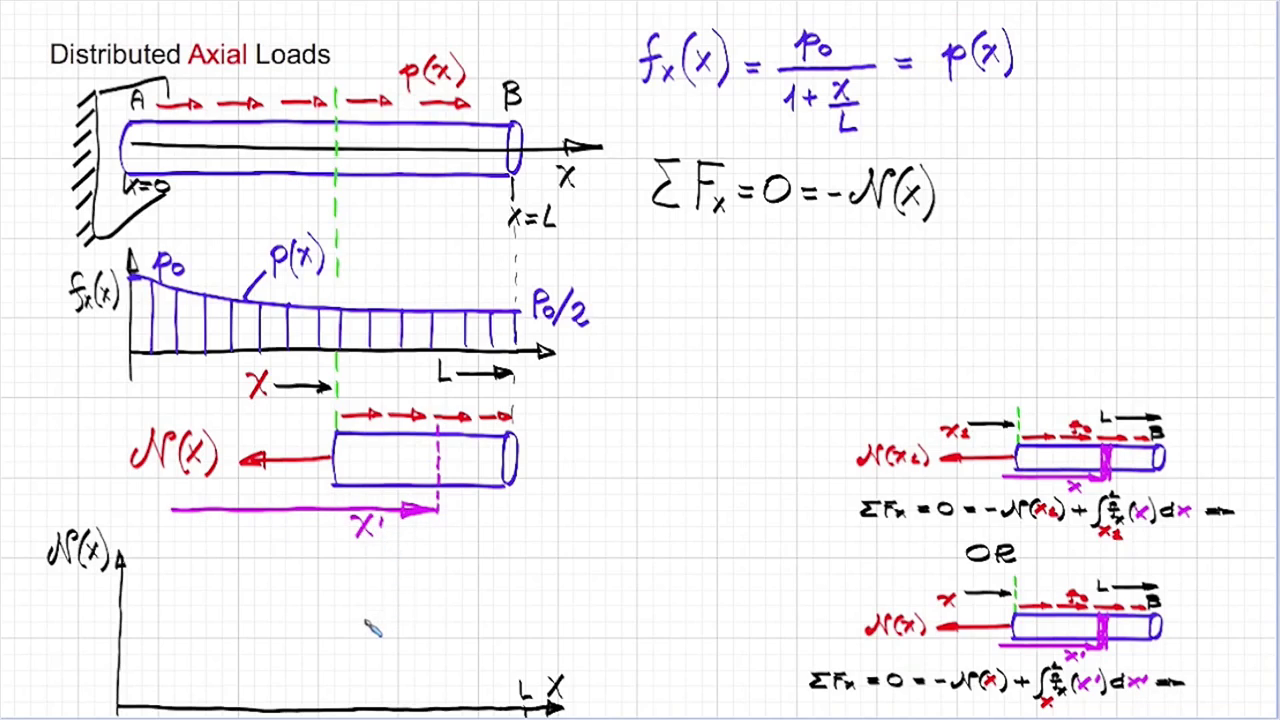 Distributed Axial Loads
p(x)
A
B
x=0
x
x=L
fx(x)
p0
p(x)
p0/2
x
L
N(x)
x'
N(x)
L
x
fx(x) = p0 / (1 + x/L) = p(x)
ΣFx = 0 = -N(x)
x1
L
B
N(x1)
x
ΣFx = 0 = -N(x1) + ∫_{x1}^{L} fx(x)dx ⇒
OR
x
L
B
N(x)
x'
ΣFx = 0 = -N(x) + ∫_{x}^{L} fx(x')dx' ⇒